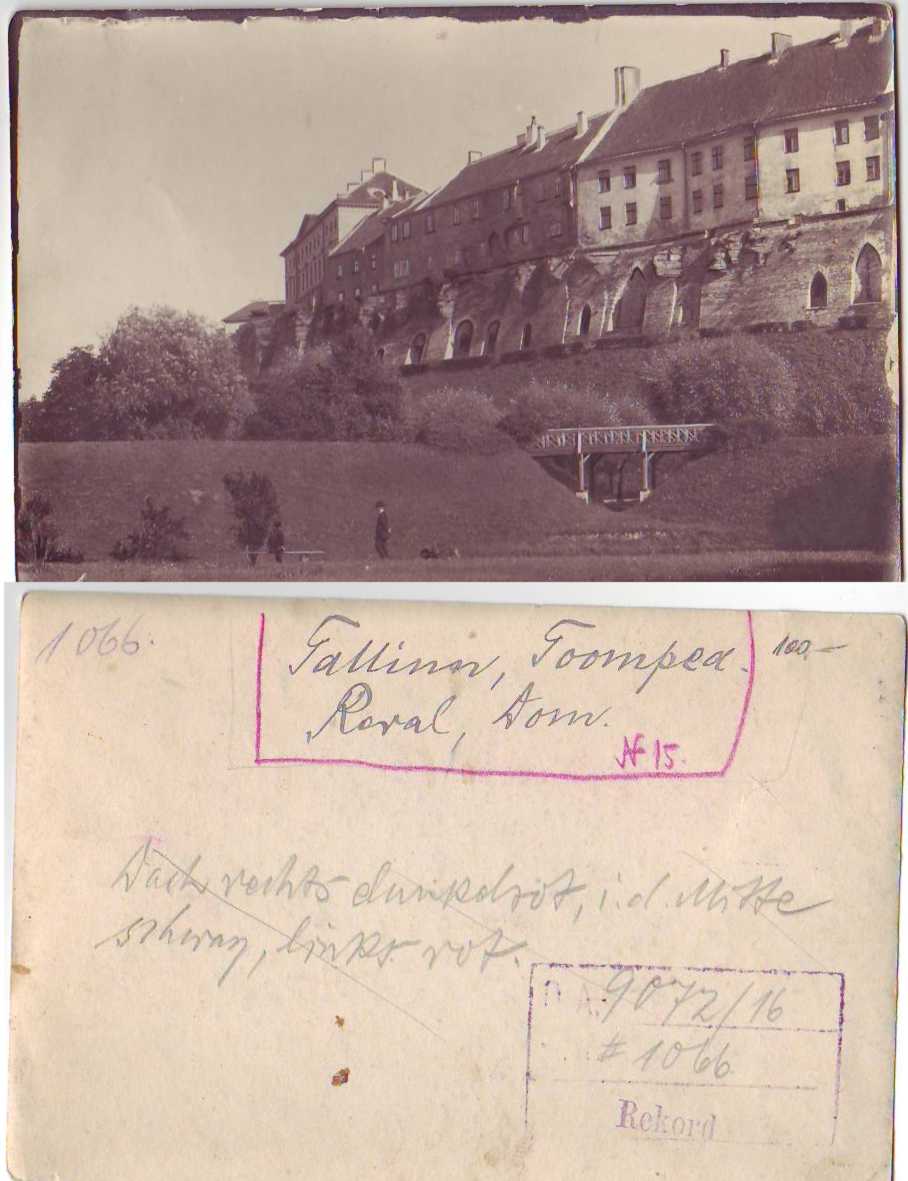 1066.
Tallinn, Toompea. 100.-
Reval, Dom.
№ 15.
Dach rechts dunkelrot, i. d. Mitte
schwarz, links rot.
9072/16
# 1066
Rekord